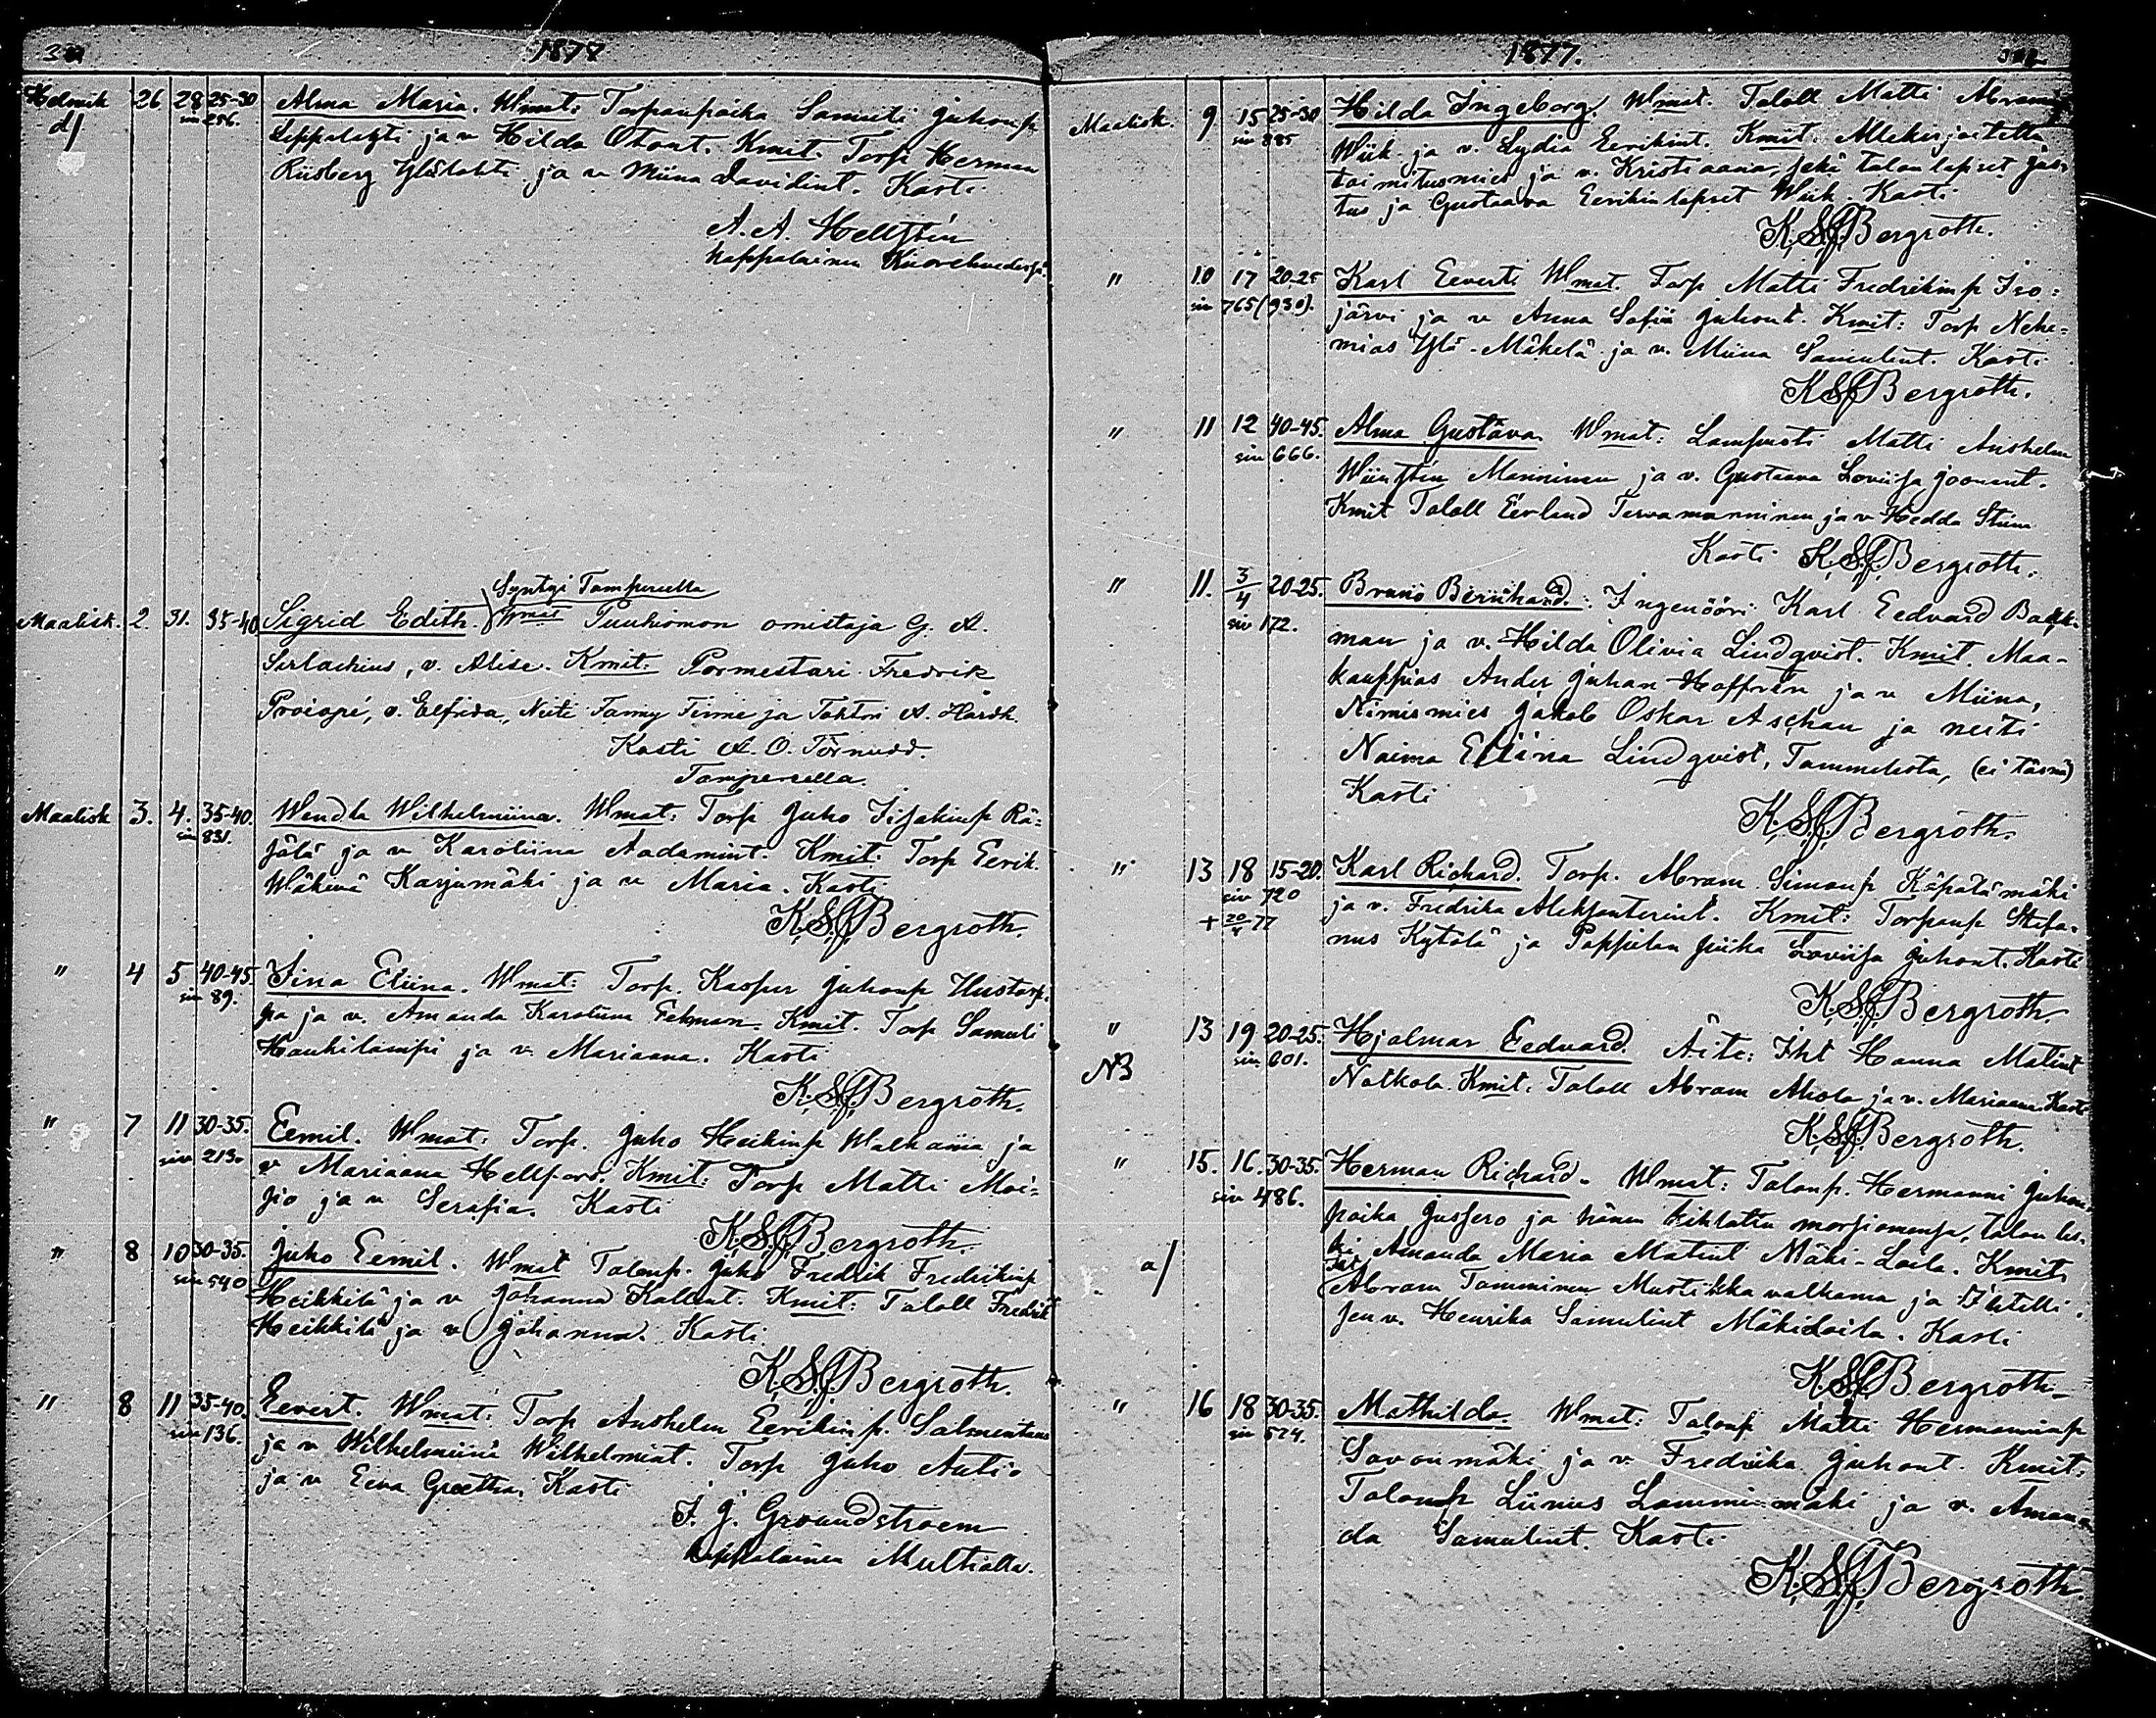 1877
Helmik 26 28 25-30 Alma Maria. Wmat: Torpanpoika Samuli Juhonp.
d/ siv 256. Leppälahti ja v Hilda Otont. Kmit. Torp Herman
Riisberg Ylälahti ja v Miina Davidint. Kasti
A. A. Hellstén
kappalainen Kuorehvedessä
Syntyi Tampereella
Maalisk. 2. 31. 35-40 Sigrid Edith. Wmat Puuhiomon omistaja G. A.
Serlachius, v. Alise. Kmit: Pormestari Fredrik
Procopé, v. Elfrida, Neiti Fanny Tinne ja Tohtori A. Hårdh.
Kasti A. O. Törnudd.
Tampereella.
Maalisk 3. 4. 35-40. Wendla Wilhelmiina. Wmat: Torp Juho Iisakinp Rä-
siv 831. sälä ja v Karoliina Aadamint. Kmit: Torp Eerik
Wäkevä Karjumäki ja v Maria. Kasti
K. S. J. Bergroth.
" 4 5 40-45. Sina Eliina. Wmat: Torp. Kasper Juhonp
siv 89. pa ja v. Amanda Karoliina Fekman. Kmit. Torp Samuli
Haukilampi ja v. Mariaana. Kasti
K. S. J. Bergroth.
" 7 11 30-35. Eemil. Wmat: Torp. Juho Heikinp Walkama ja
siv 213. v Mariaana Hellfors. Kmit: Torp Matti Moi-
sio ja v Serafia. Kasti
K. S. J. Bergroth.
" 8 10 30-35. Juho Eemil. Wmat Talonp. Juho Fredrik Fredrikinp
siv 540 Heikkilä ja v Johanna Kallent. Kmit: Taloll Fredrik
Heikkilä ja v Johanna. Kasti
K. S. J. Bergroth.
" 8 11 35-40. Eevert. Wmat: Torp Anshelm Eerikinp. Salmentaus
siv 136. ja v Wilhelmiina Wilhelmint. Torp Juho Autio
ja v Eeva Greetha. Kasti
F. J. Groundstroem
kappalainen Multialla.
1877.
Maalisk. 9 15 25-30 Hilda Ingeborg. Wmat. Taloll Matti Abramp
siv 885 Wiik ja v. Lydia Eerikint. Kmit. Allekirjoitettu
toimitusmies ja v. Kristiaana, sekä talon lapset Jus-
tus ja Gustaava Eerikinlapset Wiik. Kasti
K. S. J. Bergroth.
" 10 17 20-25 Karl Eeverti Wmat. Torp Matti Fredrikinp Iso-
siv 765 (930). järvi ja v Anna Sofia Juhont. Kmit: Torp Nehe-
mias Ylä-Mäkelä ja v. Miina Samulint. Kasti
K. S. J. Bergroth.
" 11 12 40-45. Alma Gustava. Wmat: Lampuoti Matti Anshelm
siv 666. Manninen ja v. Gustaava Loviisa Joonant.
Kmit Taloll Erland Tervamanninen ja v Hedda Stiina
Kasti K. S. J. Bergroth.
" 11. 3/4 20-25. Bruno Bernhard. Ingenööri Karl Eedvard Back-
siv 172. man ja v. Hilda Olivia Lindqvist. Kmit. Maa-
kauppias Anders Juhan Hoffrén ja v Miina,
Nimismies Jakob Oskar Aschan ja neiti
Naima Eliina Lindqvist, Tammelista, (ei läsnä)
Kasti
K. S. J. Bergroth.
" 13 18 15-20. Karl Richard. Torp. Abram Simonp Käpälämäki
siv 720 ja v. Fredrika Aleksanterint. Kmit: Torpanp Stefa-
+ 20/4 77 nus Kytölä ja Pappilan piika Loviisa Juhont. Kasti
K. S. J. Bergroth.
" 13 19 20-25. Hjalmar Eedvard. Äiti: Itst Hanna Matint
NB siv. 601. Natkola. Kmit. Taloll Abram Ahola ja v. Mariaana. Kasti
K. S. J. Bergroth.
" 15. 16. 30-35. Herman Richard. Wmat: Talonp. Hermanni Juhon-
siv 486. poika Jussero ja hänen kihlattu morsiamensa, talon les-
a/ ki Amanda Maria Matint Mäki-Laila. Kmit
Abram Tamminen Mustikkavalkama ja Itselli-
sen v. Henrika Samulint Mäkilaila. Kasti
K. S. J. Bergroth.
" 16 18 30-35. Mathilda. Wmat: Talonp Matti Hermanninp
siv 524. Savonmäki ja v Fredrika Juhont. Kmit:
Talonp Liinus Lammi-mäki ja v. Aman-
da Samulint. Kasti
K. S. J. Bergroth.